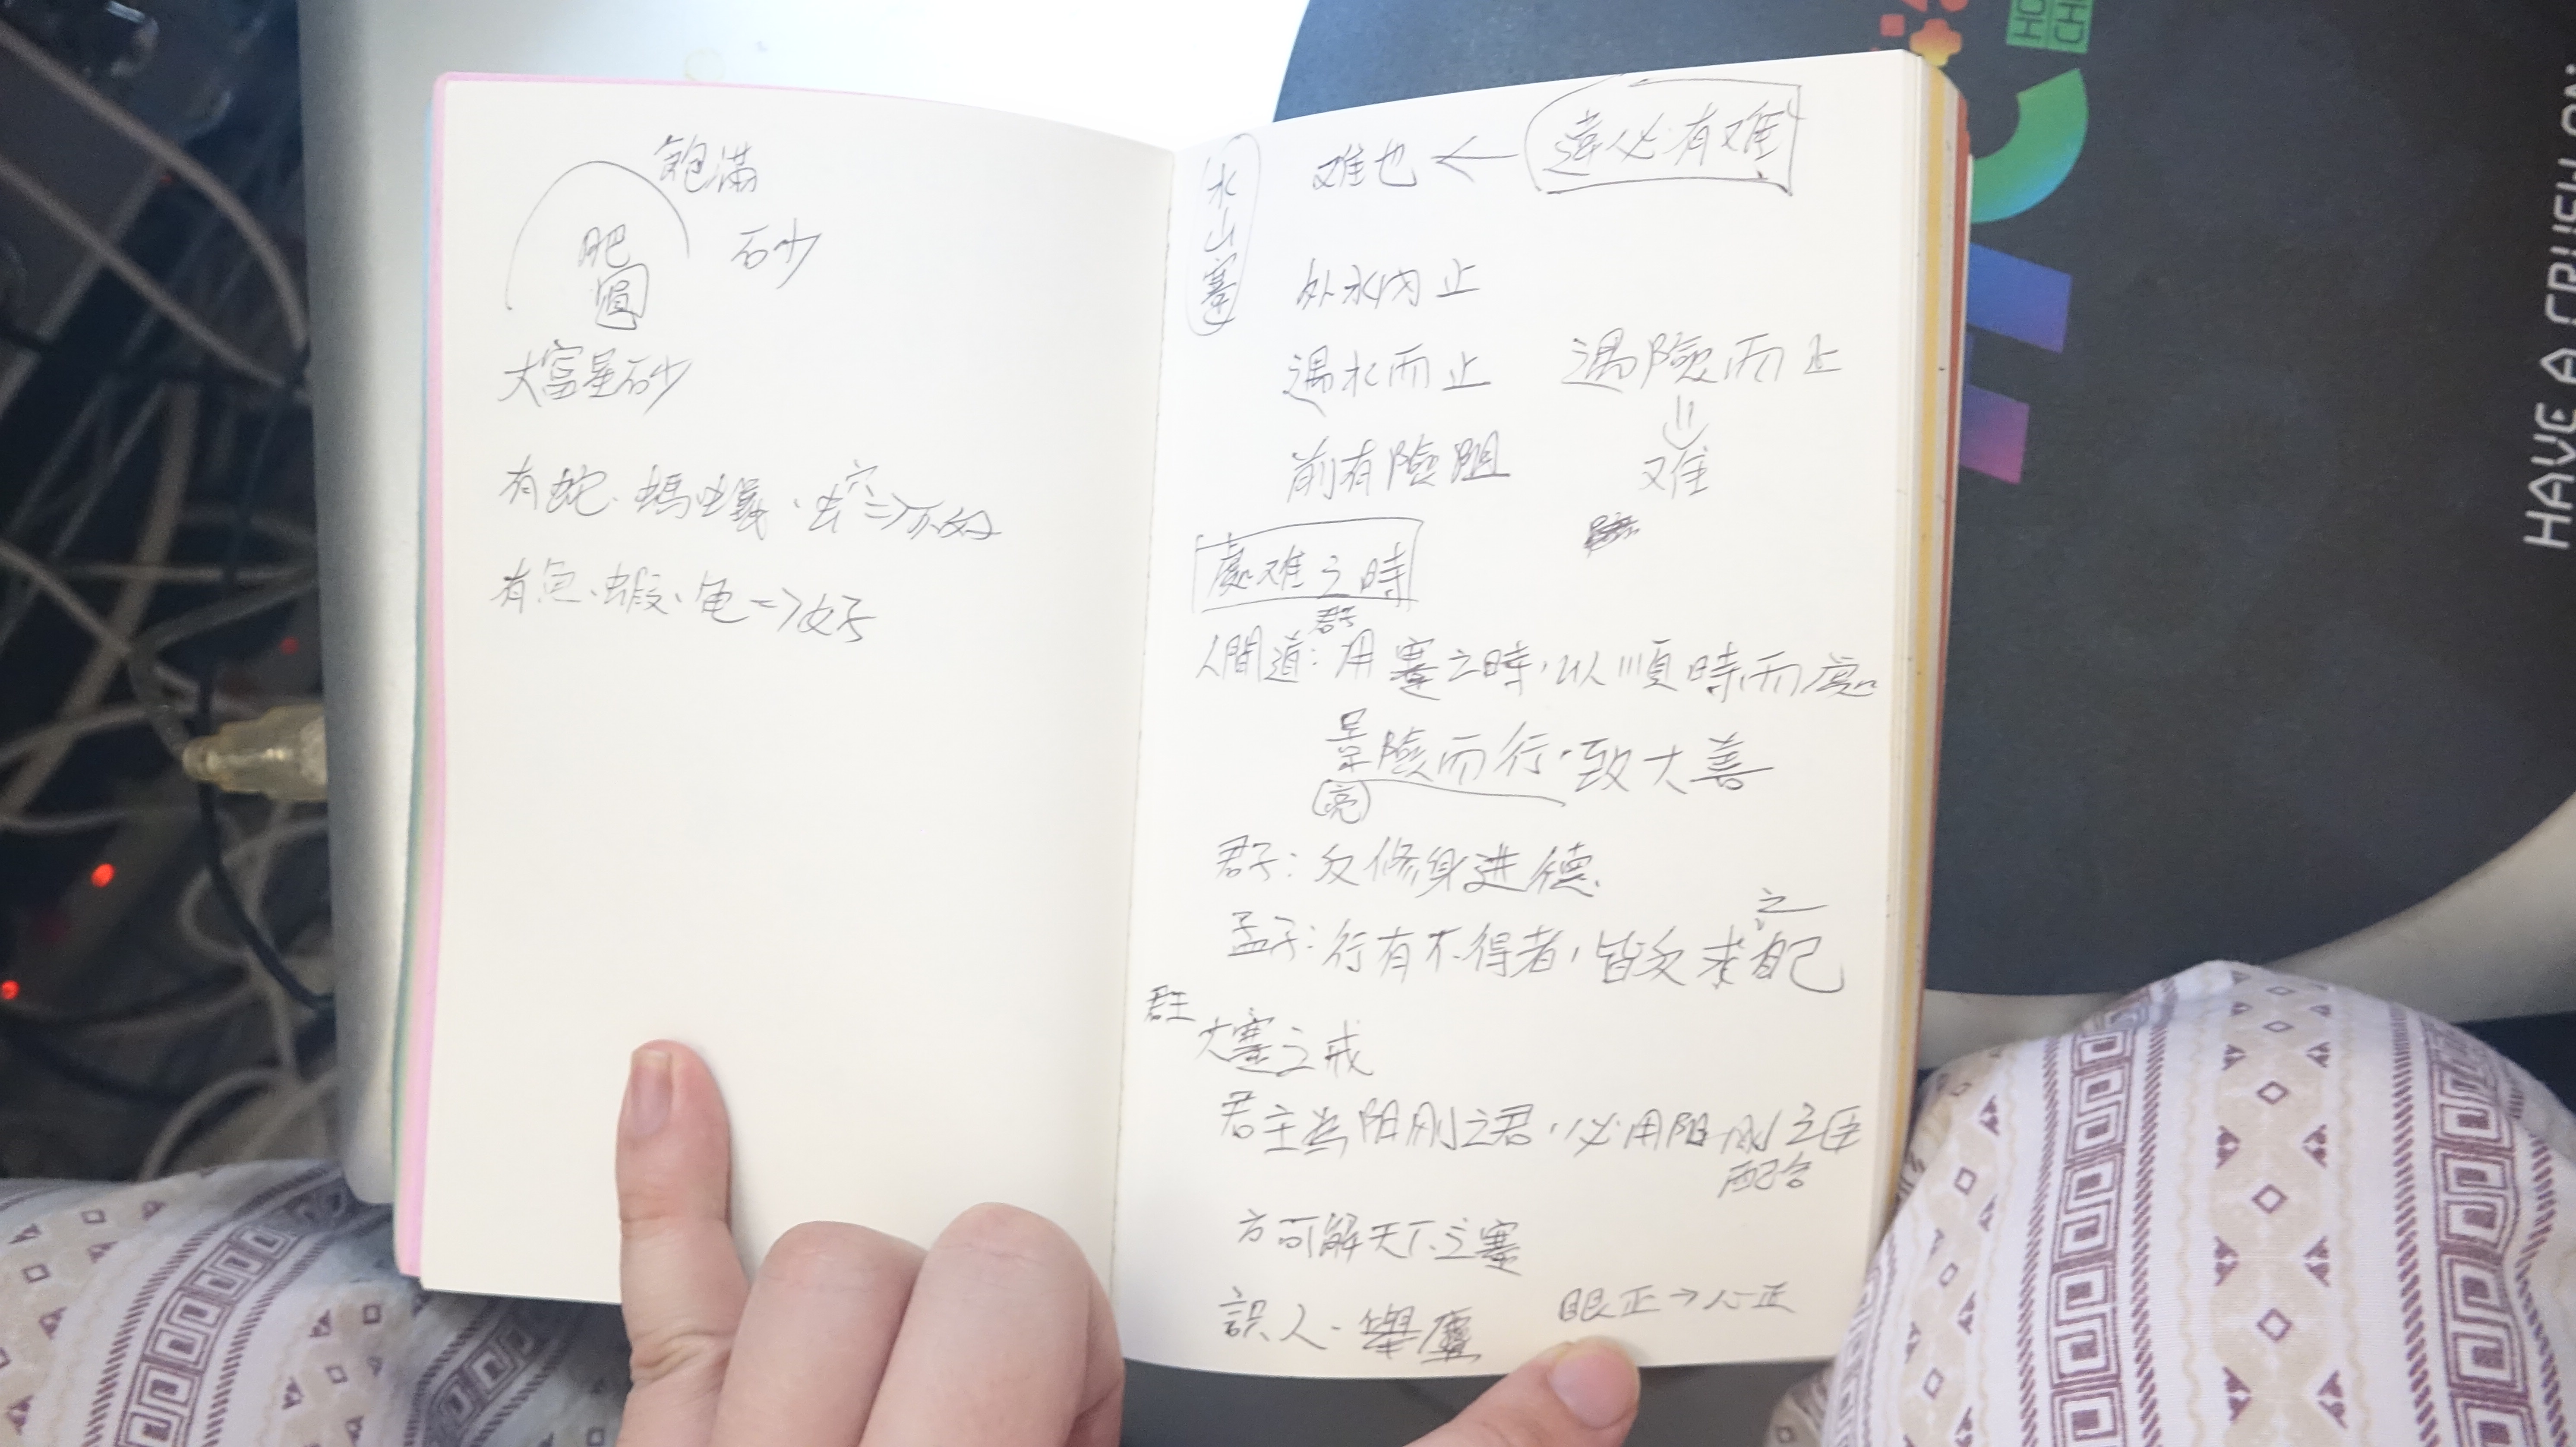 飽滿
肥
圓
砂
大富星砂
有蛇、螞蟻、虫穴=>不好
有魚、蝦、龟=>好
水山蹇
难也 ←
必有难
外水內止
遇水而止 遇險而止
前有險阻 难
處难之時
君子
人間道:用蹇之時,以順時而處
險而行,致大善
君子:反修身進德
之
孟子:行有不得者,皆反求自己
君王
大蹇之戒
君主為陽刚之君,必用陽刚之臣
配合
方可解天下之蹇
誤人、 眼正→心正
HAVE A